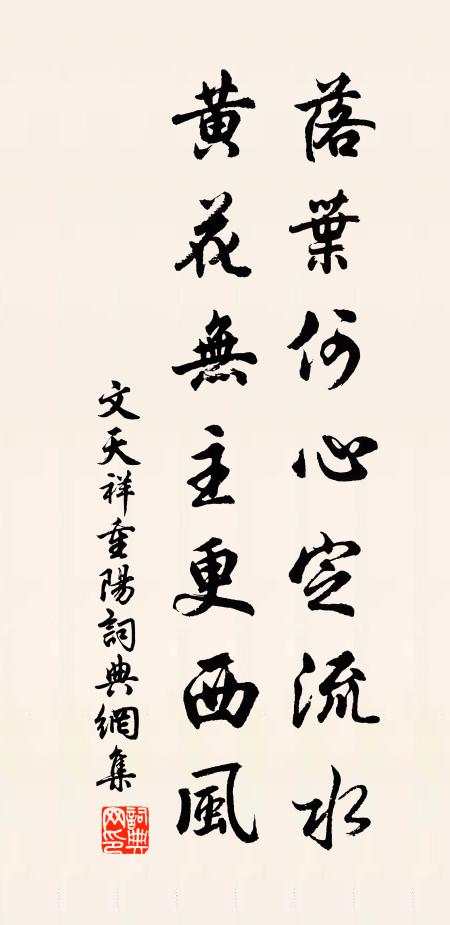 落葉何心定流水
黃花無主更西風
文天祥重陽詞典網集
詞典网印